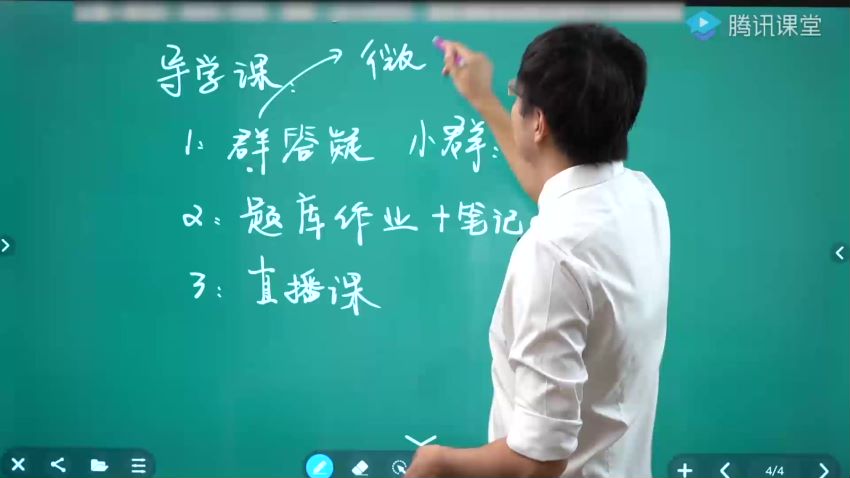 腾讯课堂
导学课:
微
1: 群答疑 小群:
2: 题库作业+笔记
3: 直播课
4/4